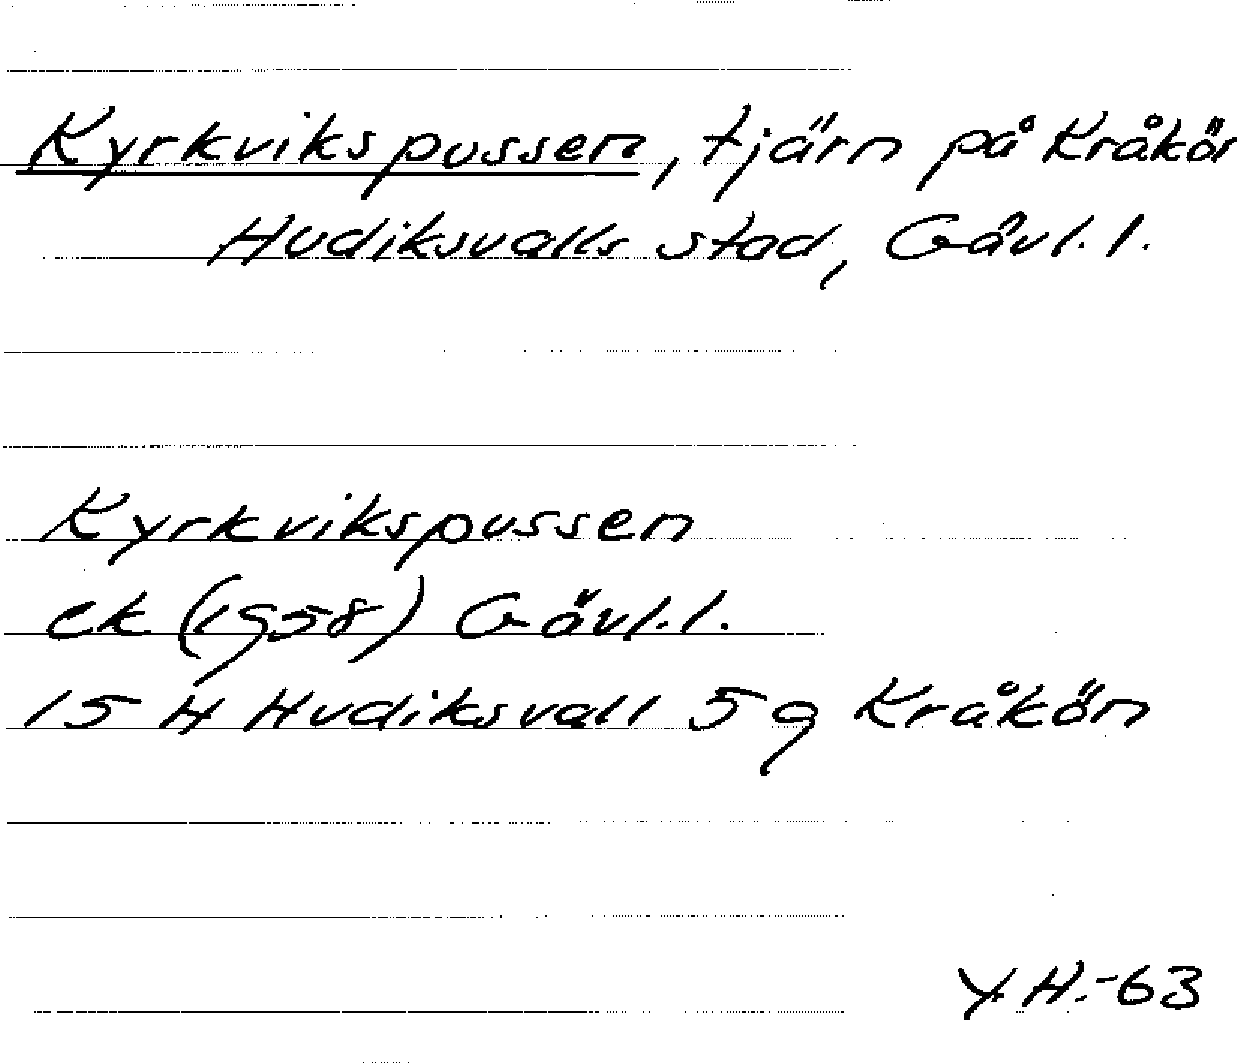 Kyrkvikspussen, tjärn på Kråkön
Hudiksvalls stad, Gävl. l.
Kyrkvikspussen
ek (1958) Gävl. l.
15 H Hudiksvall 5 g Kråkön
Y.H.-63